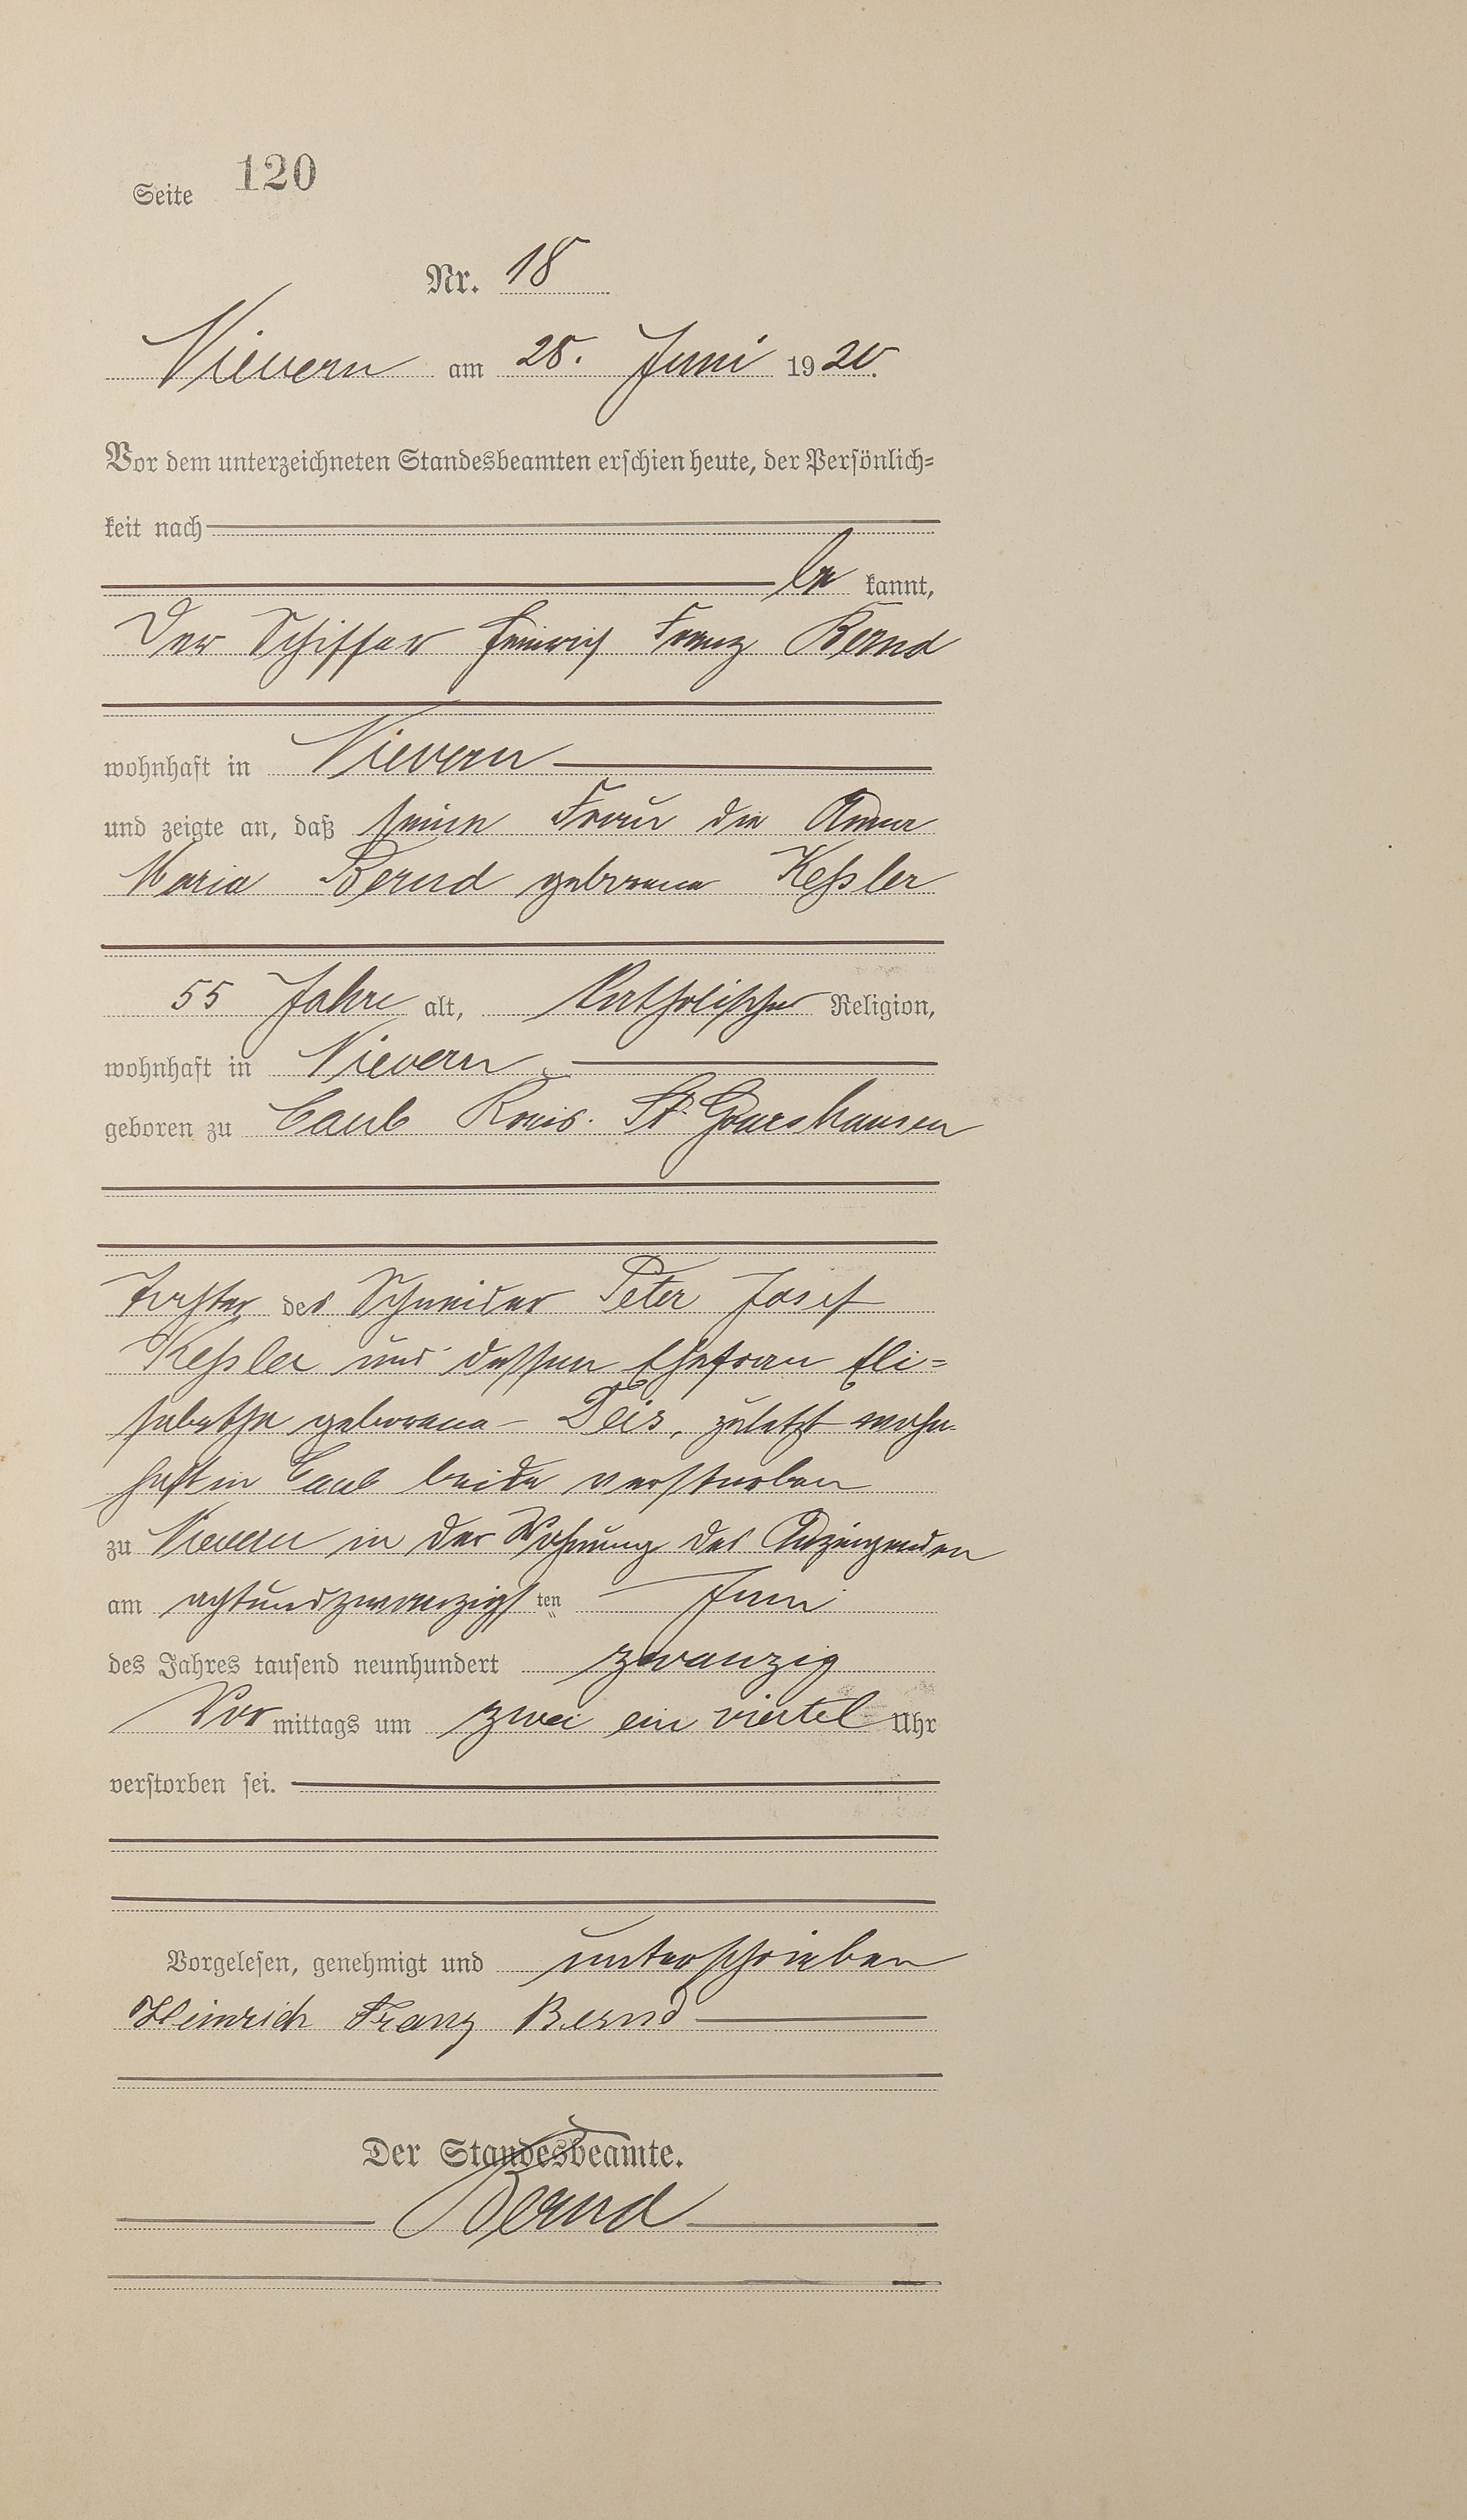 Seite 120
Nr. 18
Nievern am 28. Juni 1920.
Vor dem unterzeichneten Standesbeamten erschien heute, der Persönlich-
keit nach
be kannt,
Der Schiffer Heinrich Franz Bernd
wohnhaft in Nievern
und zeigte an, daß seine Frau die Anna
Maria Bernd geborene Keßler
55 Jahre alt, Katholischer Religion,
wohnhaft in Nievern
geboren zu Caub Kreis. St. Goarshausen
Tochter des Schneider Peter Josef
Keßler und dessen Ehefrau Eli=
sabetha geborene Deis, zuletzt wohn-
haft in Caub beide verstorben
zu Nievern in der Wohnung des Anzeigenden
am achtundzwanzigsten Juni
des Jahres tausend neunhundert zwanzig
Vor mittags um zwei ein viertel Uhr
verstorben sei.
Vorgelesen, genehmigt und unterschrieben
Heinrich Franz Bernd
Der Standesbeamte.
Bernd